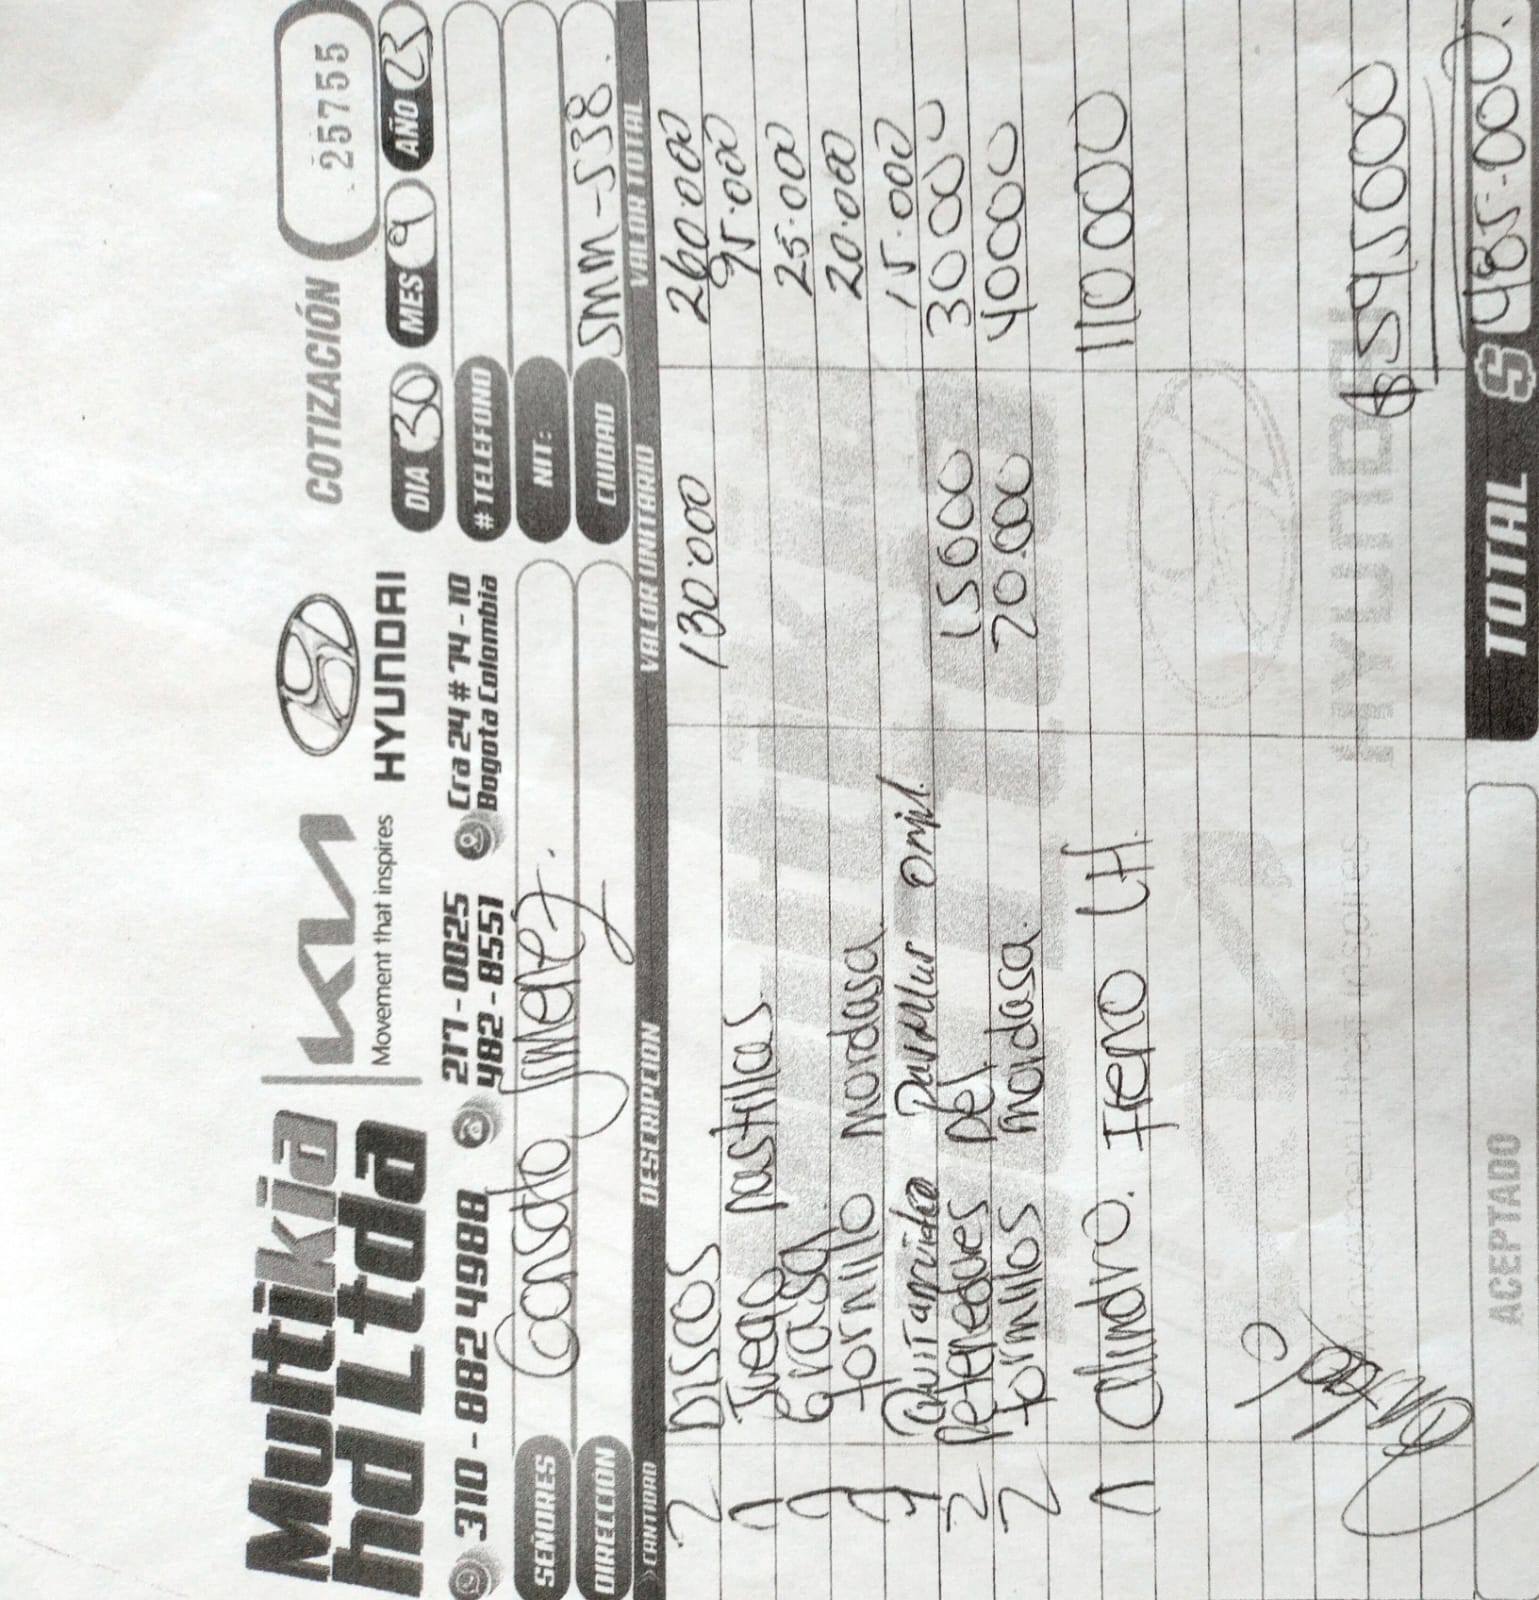 Multikia
hd Ltda
KIA
Movement that inspires
HYUNDAI
COTIZACIÓN
25755
310 - 882 4988
217-0025
482-8551
Cra 24 # 74 - 10
Bogota Colombia
DIA 30 MES 9 AÑO 23
# TELEFONO
SEÑORES
NIT:
DIRECCION
CIUDAD SMM-538.
CANTIDAD DESCRIPCION VALOR UNITARIO VALOR TOTAL
2 DISCOS 130.000 260.000
1 Juego pastillas 95.000
1 Grasa 25.000
1 tornillo mordasa 20.000
1 15.000
2 Retenedores Del 15000 30000
2 tornillos mordasa. 20.000 40000
1 cilindro. Freno LH. 110000
$595000
HYUNDAI
Movement that inspires
ACEPTADO
TOTAL $ 485.000.